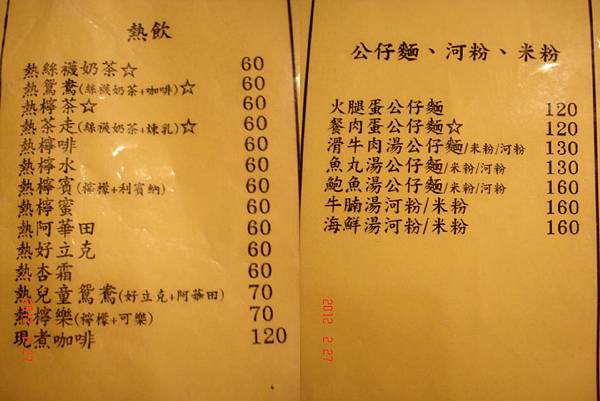 熱飲
熱絲襪奶茶☆ 60
熱鴛鴦(絲襪奶茶+咖啡)☆ 60
熱檸茶☆ 60
熱茶走(絲襪奶茶+煉乳)☆ 60
熱檸啡 60
熱檸水 60
熱檸賓(檸檬+利賓納) 60
熱檸蜜 60
熱阿華田 60
熱好立克 60
熱杏霜 60
熱兒童鴛鴦(好立克+阿華田) 70
熱檸樂(檸檬+可樂) 70
現煮咖啡 120
公仔麵、河粉、米粉
火腿蛋公仔麵 120
餐肉蛋公仔麵☆ 120
滑牛肉湯公仔麵/米粉/河粉 130
魚丸湯公仔麵/米粉/河粉 130
鮑魚湯公仔麵/米粉/河粉 160
牛腩湯河粉/米粉 160
海鮮湯河粉/米粉 160
2012 2 27